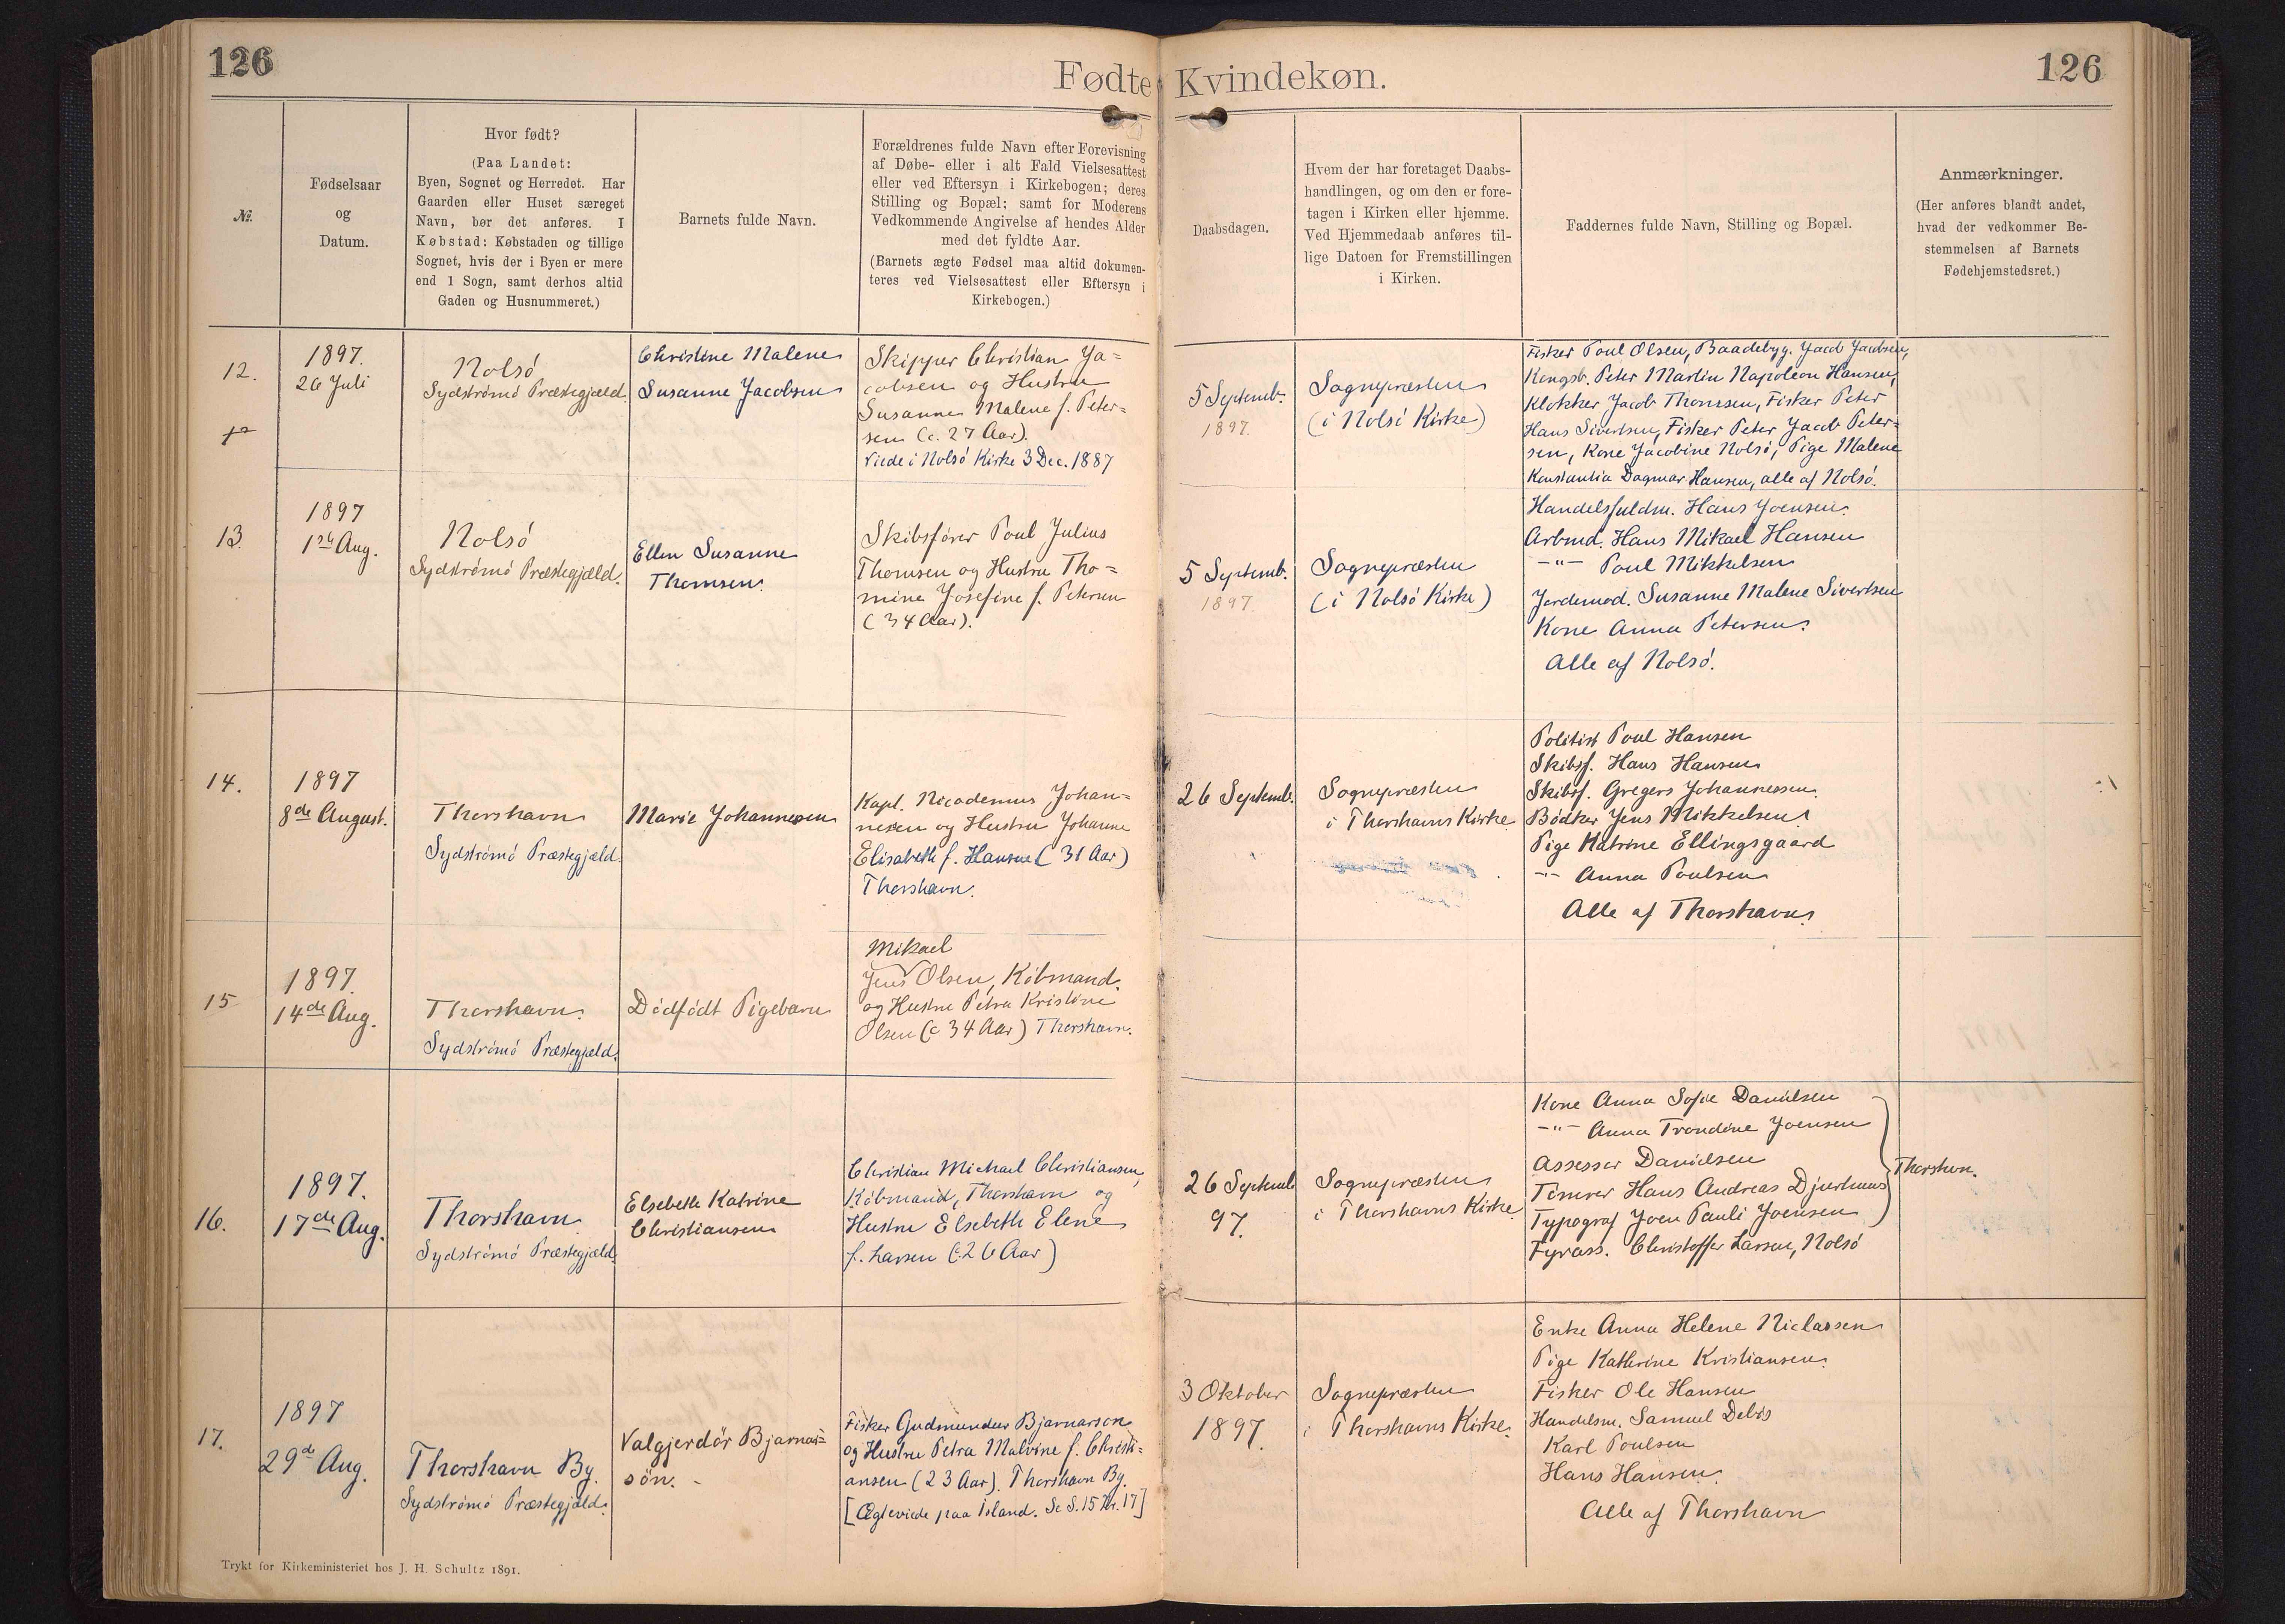 126
Fødte Kvindekøn.
126
№.
Fødselsaar
og
Datum.
Hvor født?
(Paa Landet:
Byen, Sognet og Herredet. Har
Gaarden eller Huset særeget
Navn, bør det anføres. I
Købstad: Købstaden og tillige
Sognet, hvis der i Byen er mere
end 1 Sogn, samt derhos altid
Gaden og Husnummeret.)
Barnets fulde Navn.
Forældrenes fulde Navn efter Forevisning
af Døbe- eller i alt Fald Vielsesattest
eller ved Eftersyn i Kirkebogen; deres
Stilling og Bopæl; samt for Moderens
Vedkommende Angivelse af hendes Alder
med det fyldte Aar.
(Barnets ægte Fødsel maa altid dokumen-
teres ved Vielsesattest eller Eftersyn i
Kirkebogen.)
Daabsdagen.
Hvem der har foretaget Daabs-
handlingen, og om den er fore-
tagen i Kirken eller hjemme.
Ved Hjemmedaab anføres til-
lige Datoen for Fremstillingen
i Kirken.
Faddernes fulde Navn, Stilling og Bopæl.
Anmærkninger.
(Her anføres blandt andet,
hvad der vedkommer Be-
stemmelsen af Barnets
Fødehjemstedsret.)
12.
1897.
26 Juli
Nolsö
Sydströmö Præstegjæld.
Christine Malene
Susanne Jacobsen
Skipper Christian Ja=
cobsen og Hustru
Susanne Malene f. Peter=
sen (c. 27 Aar).
Viede i Nolsö Kirke 3 Dec. 1887
5 Septemb.
1897.
Sognepræsten
(i Nolsö Kirke)
Fisker Poul Olsen, Baadebyg. Jacob Jacobsen,
Kongsb. Peter Martin Napoleon Hansen,
Klokker Jacob Thomsen, Fisker Peter
Hans Sivertsen, Fisker Peter Jacob Peter=
sen, Kone Jacobine Nolsö, Pige Malene
Konstantia Dagmar Hansen, alle af Nolsö.
13.
1897
1ste Aug.
Nolsö
Sydströmö Præstegjæld.
Ellen Susanne
Thomsen.
Skibsförer Poul Julius
Thomsen og Hustru Tho=
mine Josefine f. Petersen
(34 Aar).
5 Septemb.
1897.
Sognepræsten
(i Nolsö Kirke)
Handelsfuldm. Hans Joensen.
Arbmd. Hans Mikael Hansen
-"- Poul Mikkelsen
Jordemod. Susanne Malene Sivertsen
Kone Anna Petersen.
Alle af Nolsö.
14.
1897
8de August.
Thorshavn
Sydströmö Præstegjæld.
Marie Johannesen
Kapt. Nicodemus Johan=
nesen og Hustru Johanne
Elisabeth f. Hansen (31 Aar)
Thorshavn.
26 Septemb.
Sognepræsten
i Thorshavns Kirke
Politist Poul Hansen
Skibsf. Hans Hansen
Skibsf. Gregers Johannessen.
Bödker Jens Mikkelsen
Pige Katrine Ellingsgaard
-"- Anna Poulsen
Alle af Thorshavn
15
1897.
14de Aug.
Thorshavn.
Sydströmö Præstegjæld.
Dödfödt Pigebarn
Mikael
Jens Olsen, Köbmand.
og Hustru Petra Kristine
Olsen (c 34 Aar) Thorshavn.
16.
1897.
17de Aug.
Thorshavn
Sydströmö Præstegjæld.
Elsebeth Katrine
Christiansen
Christian Michael Christiansen,
Köbmand, Thorshavn og
Hustru Elsebeth Elene
f. Larsen (c. 26 Aar)
26 Septemb
97.
Sognepræsten
i Thorshavns Kirke
Kone Anna Sofie Danielsen
-"- Anna Trondine Joensen
Assessor Danielsen
Tömrer Hans Andreas Djurhuus
Typograf Joen Pauli Joensen
Thorshvn.
Fyrass. Christoffer Larsen, Nolsö
17.
1897
29de Aug.
Thorshavn By.
Sydströmö Præstegjæld.
Valgjerdör Bjarnar=
sön.
Fisker Gudmundur Bjarnarson
og Hustru Petra Malvine f. Christi=
ansen (23 Aar). Thorshavn By.
[Ægteviede paa Island. Se S. 15 Nr. 17]
3 Oktober
1897.
Sognepræsten
i Thorshavns Kirke.
Enke Anna Helene Niclassen
Pige Kathrine Kristiansen.
Fisker Ole Hansen
Handelsm. Samuel Debes
Karl Poulsen
Hans Hansen.
Alle af Thorshavn
Trykt for Kirkeministeriet hos J. H. Schultz 1891.